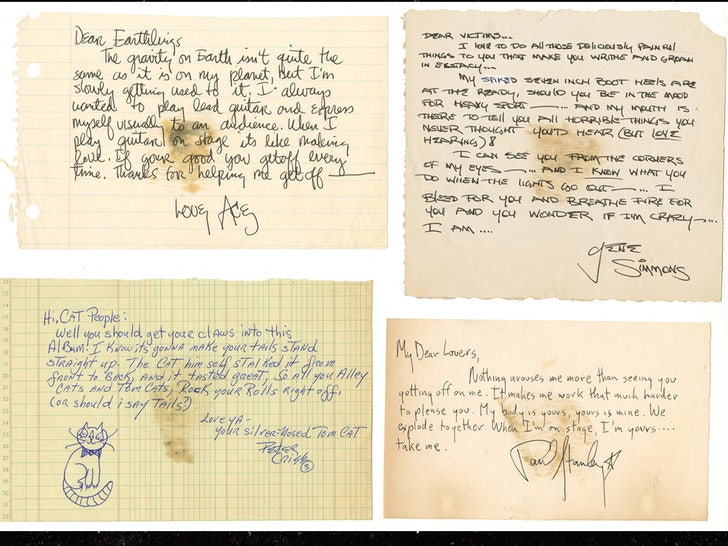 Dear Earthlings
The gravity on Earth isn't quite the
same as it is on my planet, but I'm
slowly getting used to it. I always
wanted to play lead guitar and express
myself visually to an audience. When I
play guitar on stage its like making
love. If your good you get off every
time. Thanks for helping me get off —
Love, Ace
DEAR VICTIMS...
I LOVE TO DO ALL THOSE DELICIOUSLY PAINFUL
THINGS TO YOU THAT MAKE YOU WRITHE AND GROAN
IN ECSTACY...
MY SPIKED SEVEN INCH BOOT HEELS ARE
AT THE READY, SHOULD YOU BE IN THE MOOD
FOR HEAVY SPORT —... AND MY MOUTH IS
THERE TO TELL YOU ALL HORRIBLE THINGS YOU
NEVER THOUGHT YOU'D HEAR (BUT LOVE
HEARING)!
I CAN SEE YOU FROM THE CORNERS
OF MY EYES —... AND I KNOW WHAT YOU
DO WHEN THE LIGHTS GO OUT —... I
BLEED FOR YOU AND BREATHE FIRE FOR
YOU AND YOU WONDER IF I'M CRAZY —...
I AM ....
GENE
SIMMONS
Hi, CAT People:
Well you should get your claws into this
Album. I Know its gonna make your tails stand
straight up. The Cat him self stalked it from
front to Back, and it tasted great, So all you Alley
Cats and Tom Cats, Rock your Rolls Right off,
(or should i say Tails?)
Love ya -
your silver-Nosed Tom CAT
Peter
Criss
My Dear Lovers,
Nothing arouses me more than seeing you
getting off on me. It makes me work that much harder
to please you. My body is yours, yours is mine. We
explode together. When I'm on stage, I'm yours....
take me.
Paul Stanley